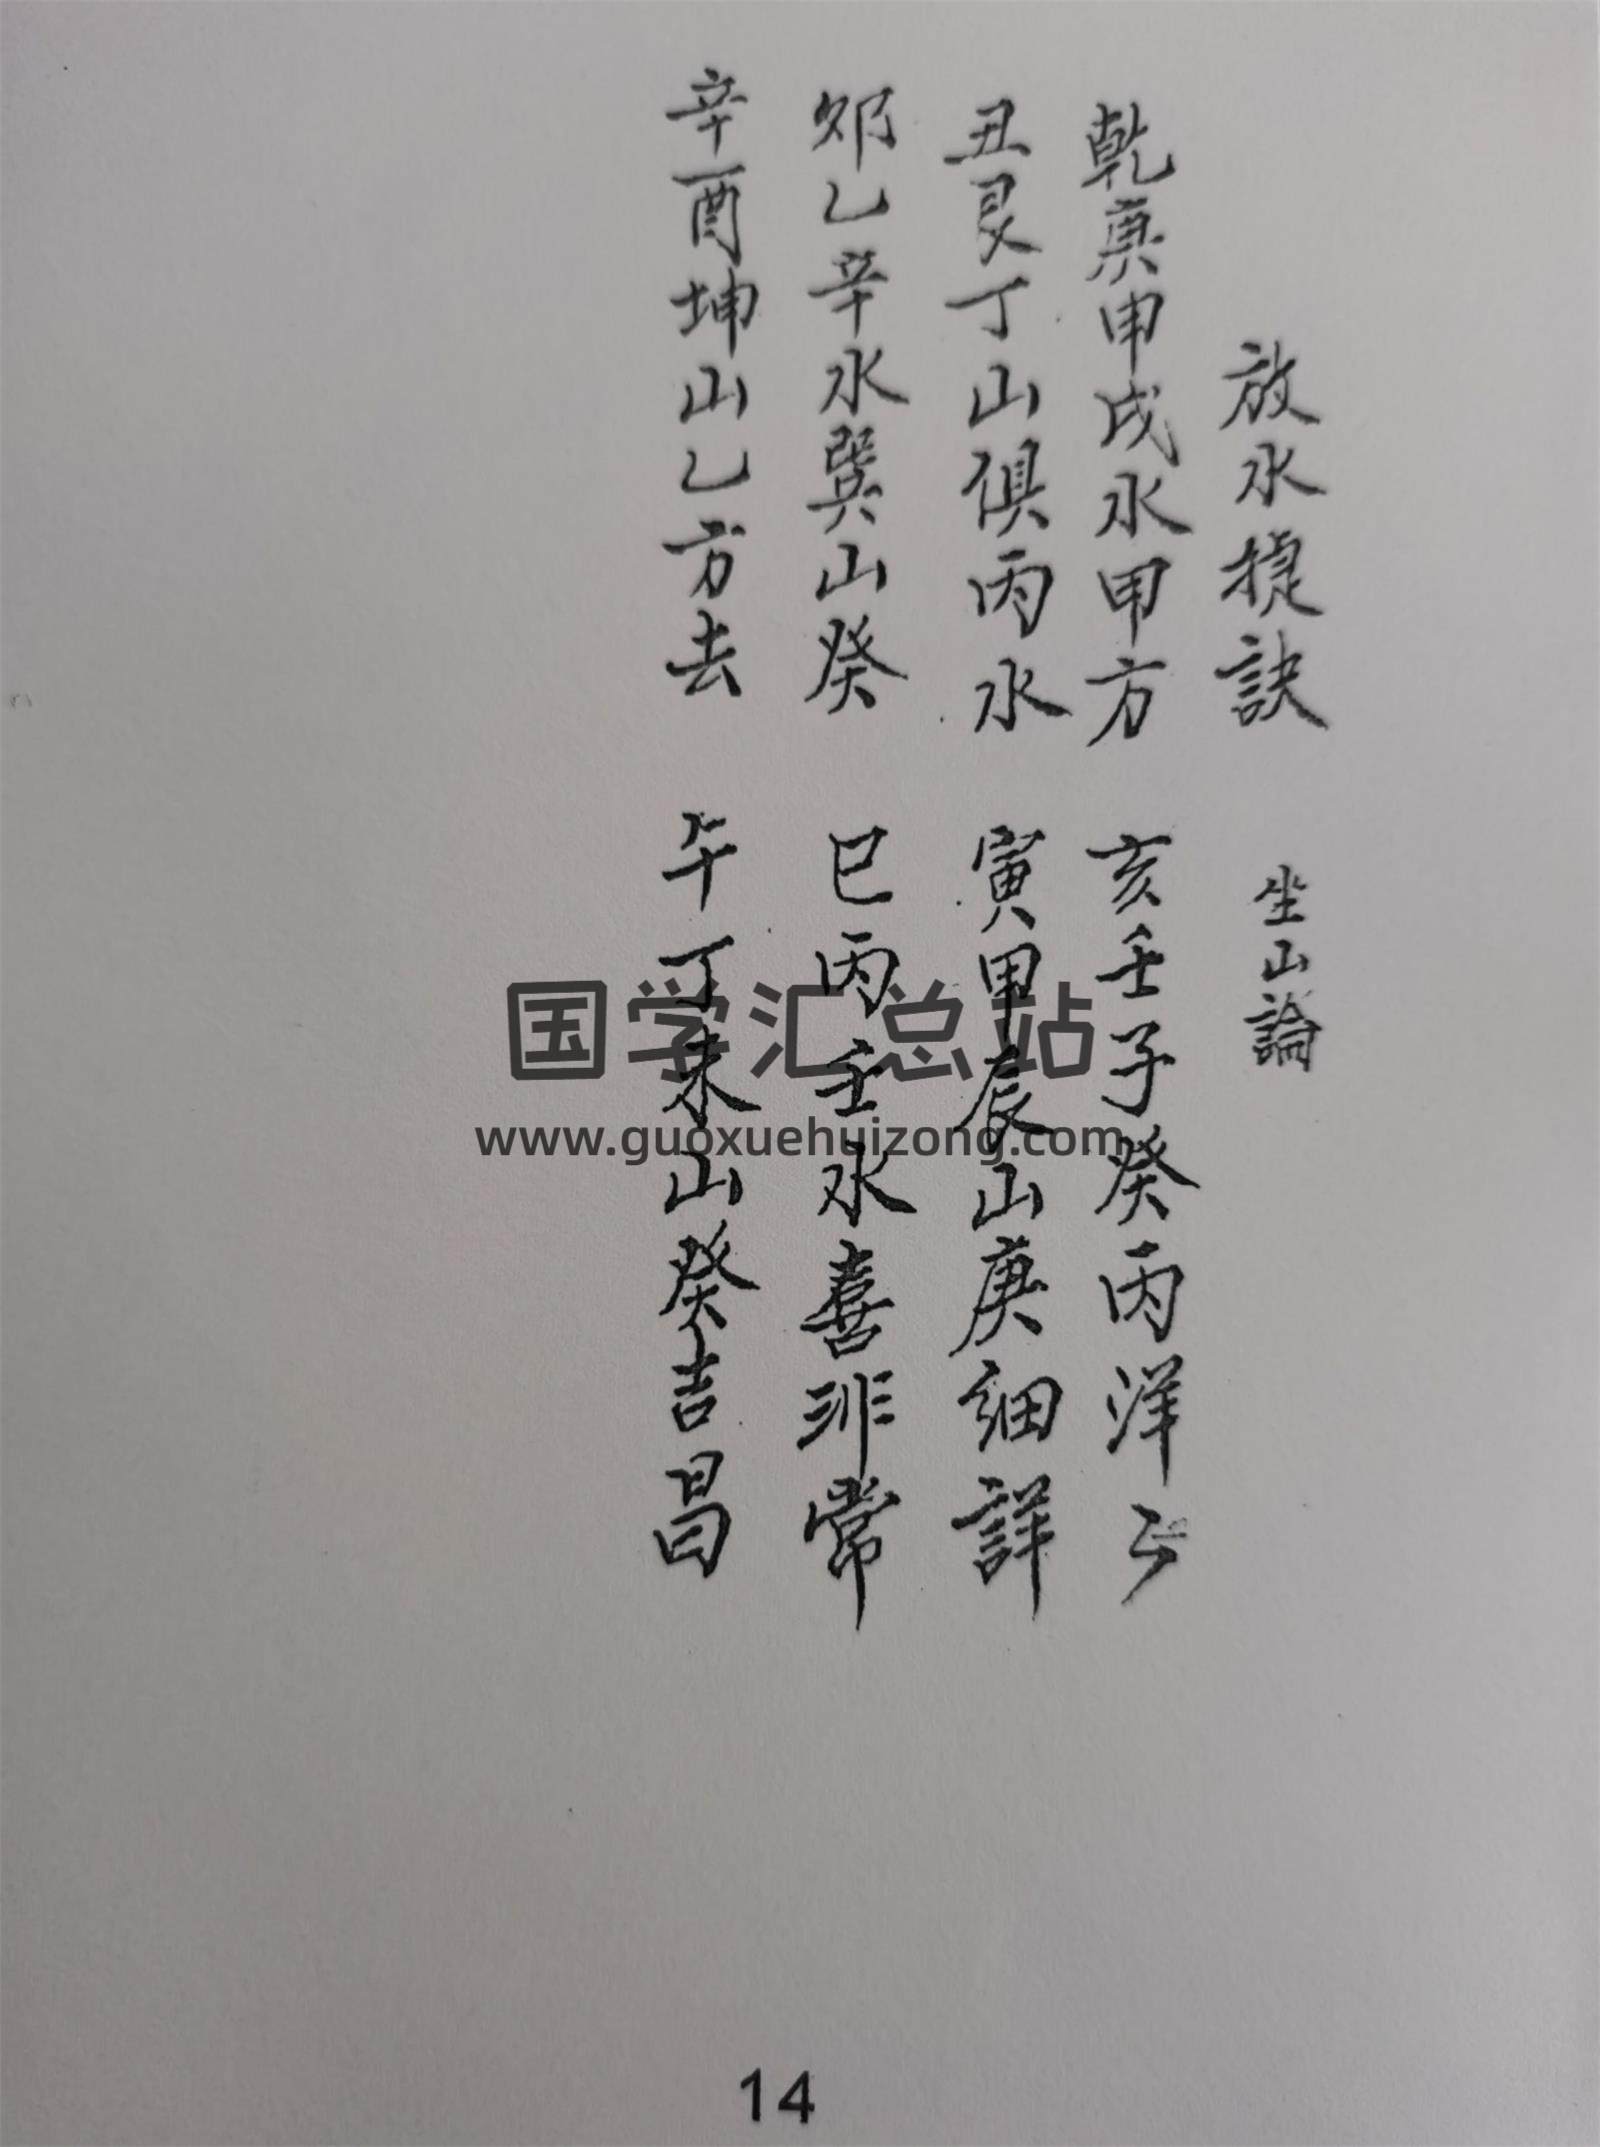 放水捷訣 坐山論
乾庚申戌水甲方 亥壬子癸丙洋々
丑艮丁山俱丙水 寅甲辰山庚細詳
卯乙辛水巽山癸 巳丙壬水喜非常
辛酉坤山乙方去 午丁未山癸吉昌
国学汇总站
www.guoxuehuizong.com
14